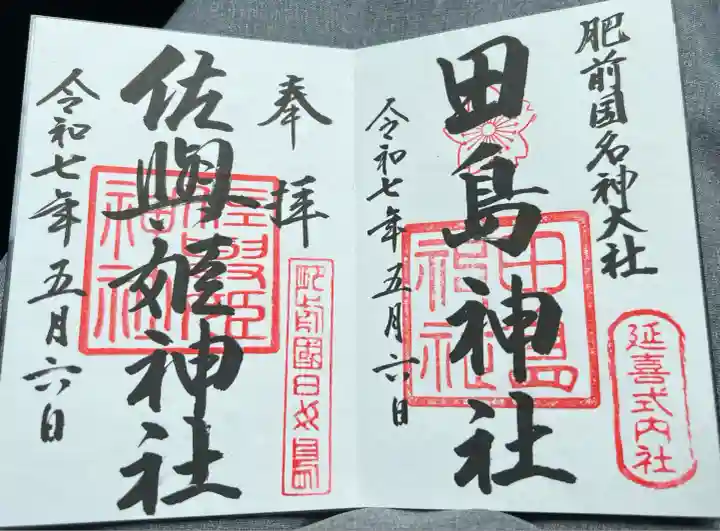 肥前国名神大社
延喜式内社
田島神社
田島神社
令和七年五月六日
奉拝
佐與姫神社
令和七年五月六日